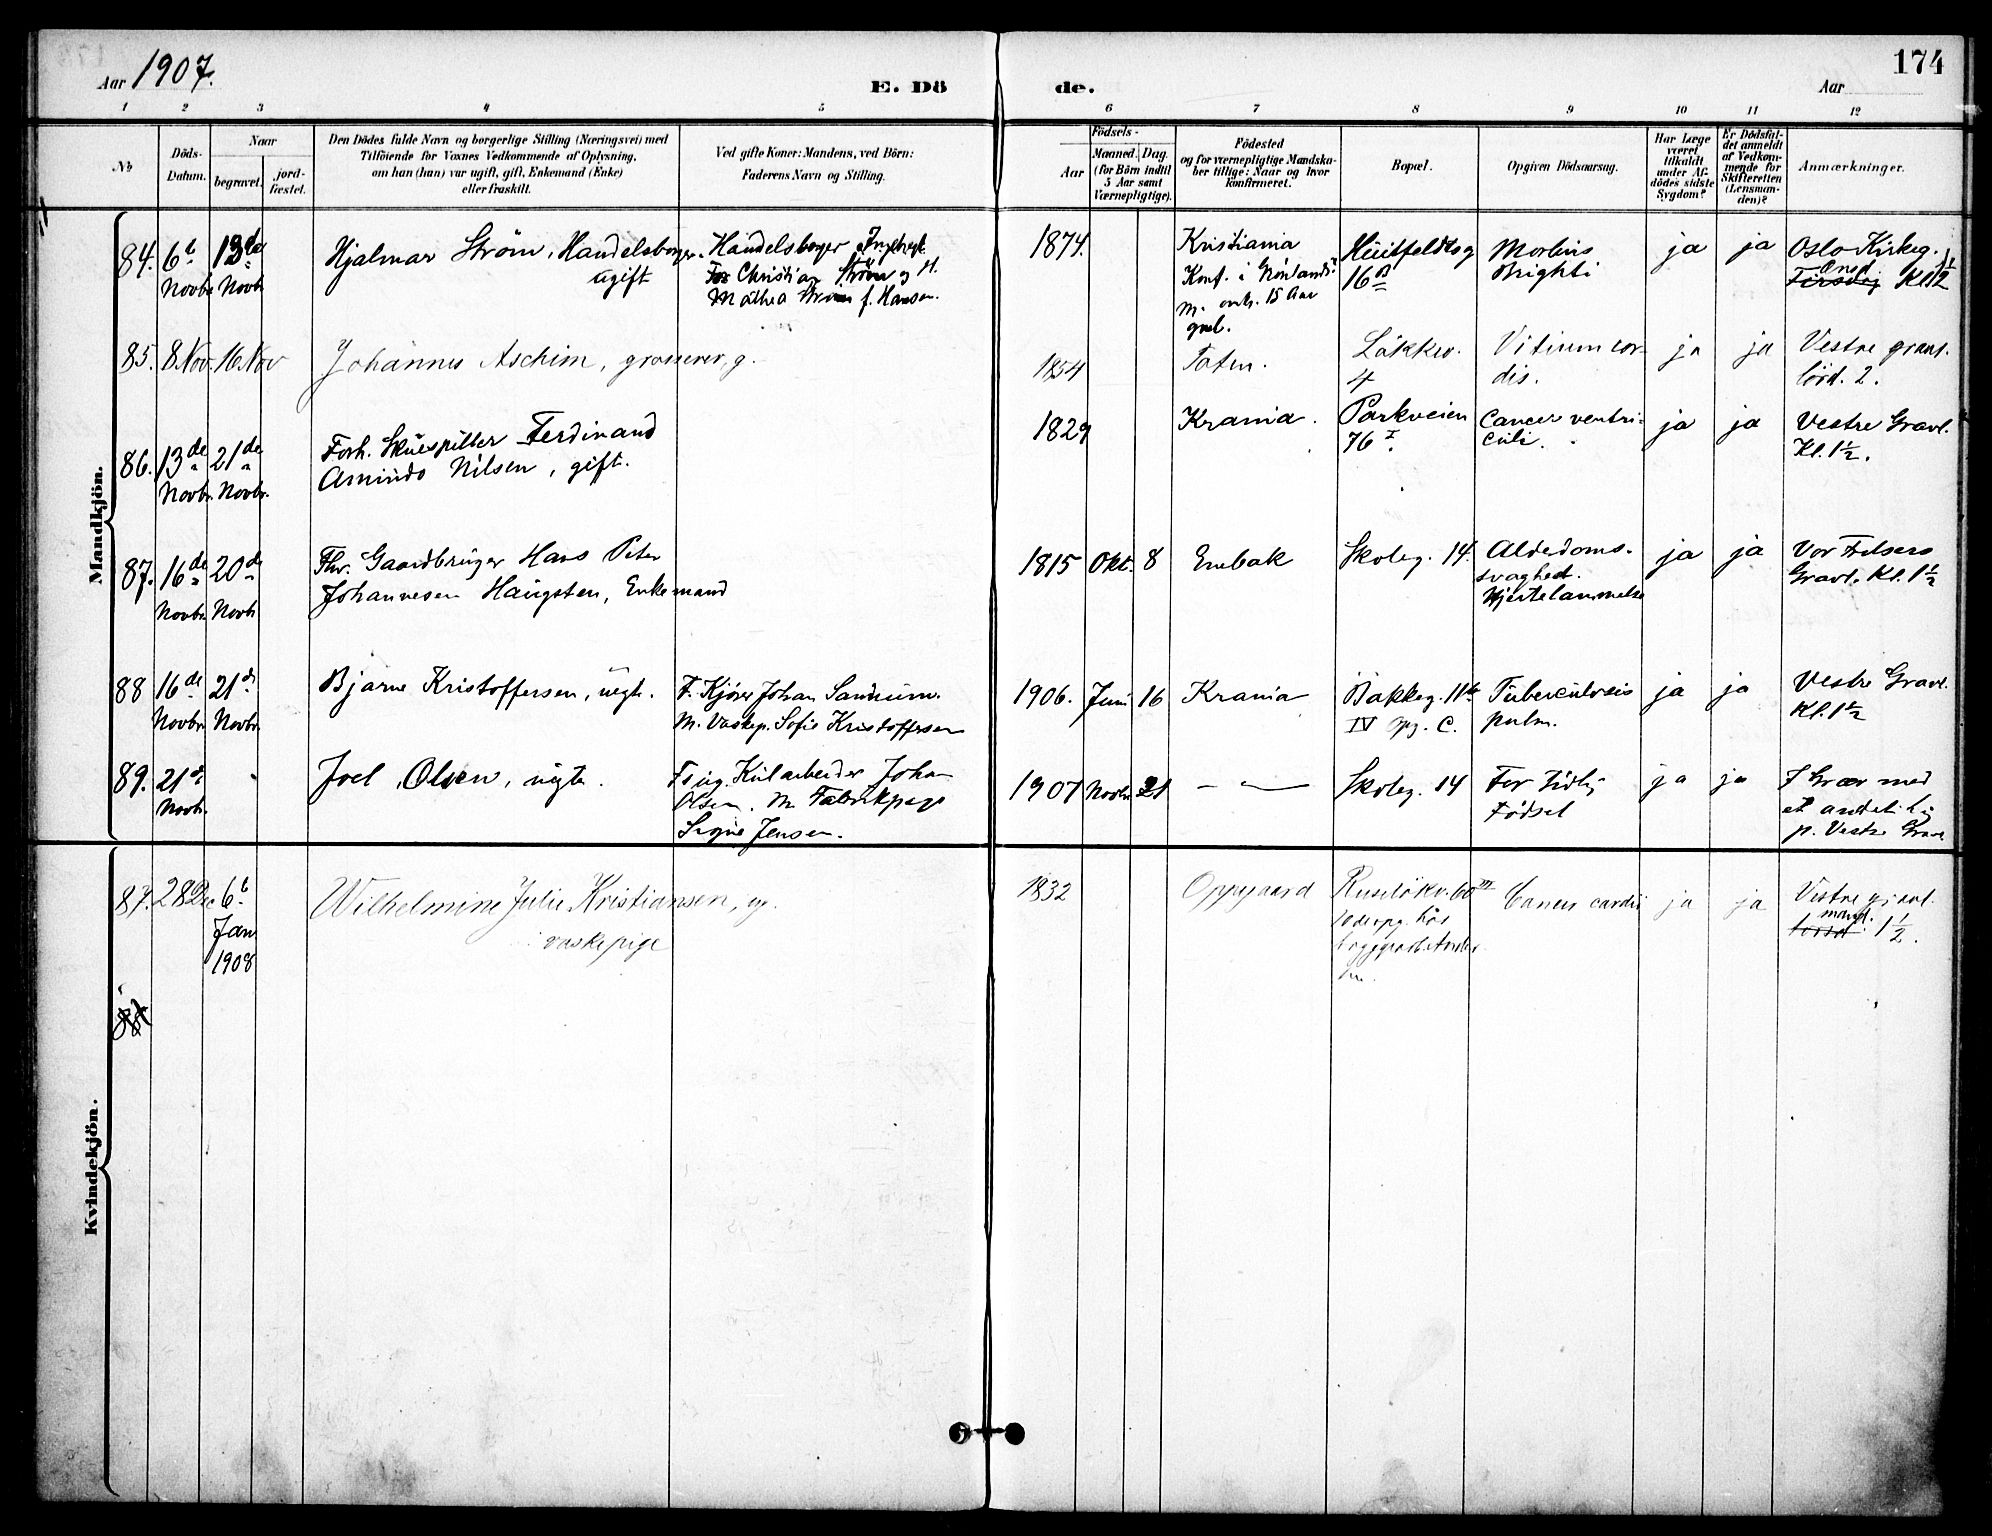 Aar 1907.
E. Dö
de.
Aar
174
1 2 3 4 5 6 7 8 9 10 11 12
No
Döds-
Datum.
Naar
begravet.
jord-
fæstet.
Den Dödes fulde Navn og borgerlige Stilling (Næringsvei) med
Tilföiende for Voxnes Vedkommende af Oplysning,
om han (hun) var ugift, gift, Enkemand (Enke)
eller fraskilt.
Ved gifte Koner: Mandens, ved Börn:
Faderens Navn og Stilling.
Födsels-
Aar
Maaned. Dag.
(for Börn indtil
5 Aar samt
Værnepligtige).
Födested
og for værnepligtige Mandska-
ber tillige: Naar og hvor
konfirmeret.
Bopæl.
Opgiven Dödsaarsag.
Har Læge
været
tilkaldt
under Af-
dödes sidste
Sygdom?
Er Dödsfal-
det anmeldt
af Vedkom-
mende for
Skifteretten
(Lensman-
den)?
Anmærkninger.
Mandkjön.
84. 6t
Novbr
13de
Novbr
Hjalmar Ström, Handelsborger.
ugift
Handelsborger
Christian Ström og H.
Mathea Ström f. Hansen.
1874.
Kristiania
Konf. i Grönlands
M. 15 Aar
gml.
Huitfeldtsg
16B
Morbus
Brighti
ja
ja
Oslo Kirkeg.
Onsd
Tirsdag Kl 1½
85. 8 Nov. 16 Nov
Johannes Aschim, grosserer, g.
1854
Toten.
Lökkev.
4
Vitium cor-
dis.
ja
ja
Vestre gravl.
lörd. 2.
86. 13de
Novbr.
21de
Novbr.
Forh. Skuespiller Ferdinand
Amindo Nilsen, gift.
1829
Krania.
Parkveien
76 I.
Cancer ventri-
culi.
ja
ja
Vestre Gravl.
Kl. 1½.
87. 16de
Novbr.
20de
Novb
Fhv. Gaardbruger Hans Peter
Johannesen Haugsten, Enkemand
1815 Okt. 8
Enebak
Skoleg. 14.
Alderdoms-
svaghed.
Hjertelammelse
ja
ja
Vor Frelsers
Gravl. Kl. 1½
88 16de
Novbr.
21de
Novbr.
Bjarne Kristoffersen, uegt.
F. Kjörer Johan Sandum.
M. Vaskep. Sofie Kristoffersen
1906. Juni 16
Krania
Bakkeg. 11b
IV opg. C.
Tuberculosis
pulm.
ja
ja
Vestre Gravl.
Kl. 1½
89. 21de
Novb.
Joel Olsen, uegte.
F ug. Kularbeider Johan
Olsen. M Fabrikpige
Signe Jensen.
1907 Novbr 21
— —
Skoleg. 14
For tidlig
Födsel
ja
ja
I Grav med
et andet Lig
p. Vestre Gravl.
Kvindekjön.
87. 28 Dec 6t
Jan
1908
Wilhelmine Julie Kristiansen, ug.
vaskepige
1832
Oppegaard
Ruselökv. 60 III
hos
Cancer cardii
ja
ja
Vestre gravl.
mand.
1½.
88